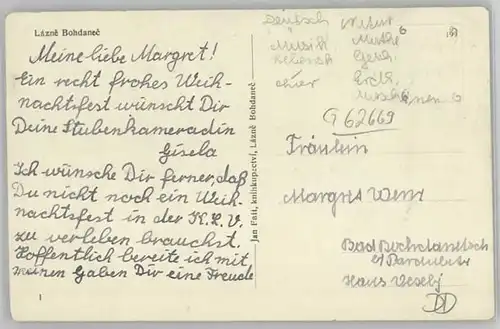 Lázně Bohdaneč
Meine liebe Margret!
Ein recht frohes Weih-
nachtsfest wünscht Dir
Deine Stubenkameradin
Gisela
Ich wünsche Dir ferner, daß
Du nicht noch ein Weih-
nachtsfest in der K.L.V.
zu verleben brauchst.
Hoffentlich bereite ich mit
meinen Gaben Dir eine Freude
1
Jan Fait, knihkupectví, Lázně Bohdaneč
Deutsch
Musik
Mathe
Gesch.
Erdk.
G 62669
Fräulein
Margret
Hans Veselý